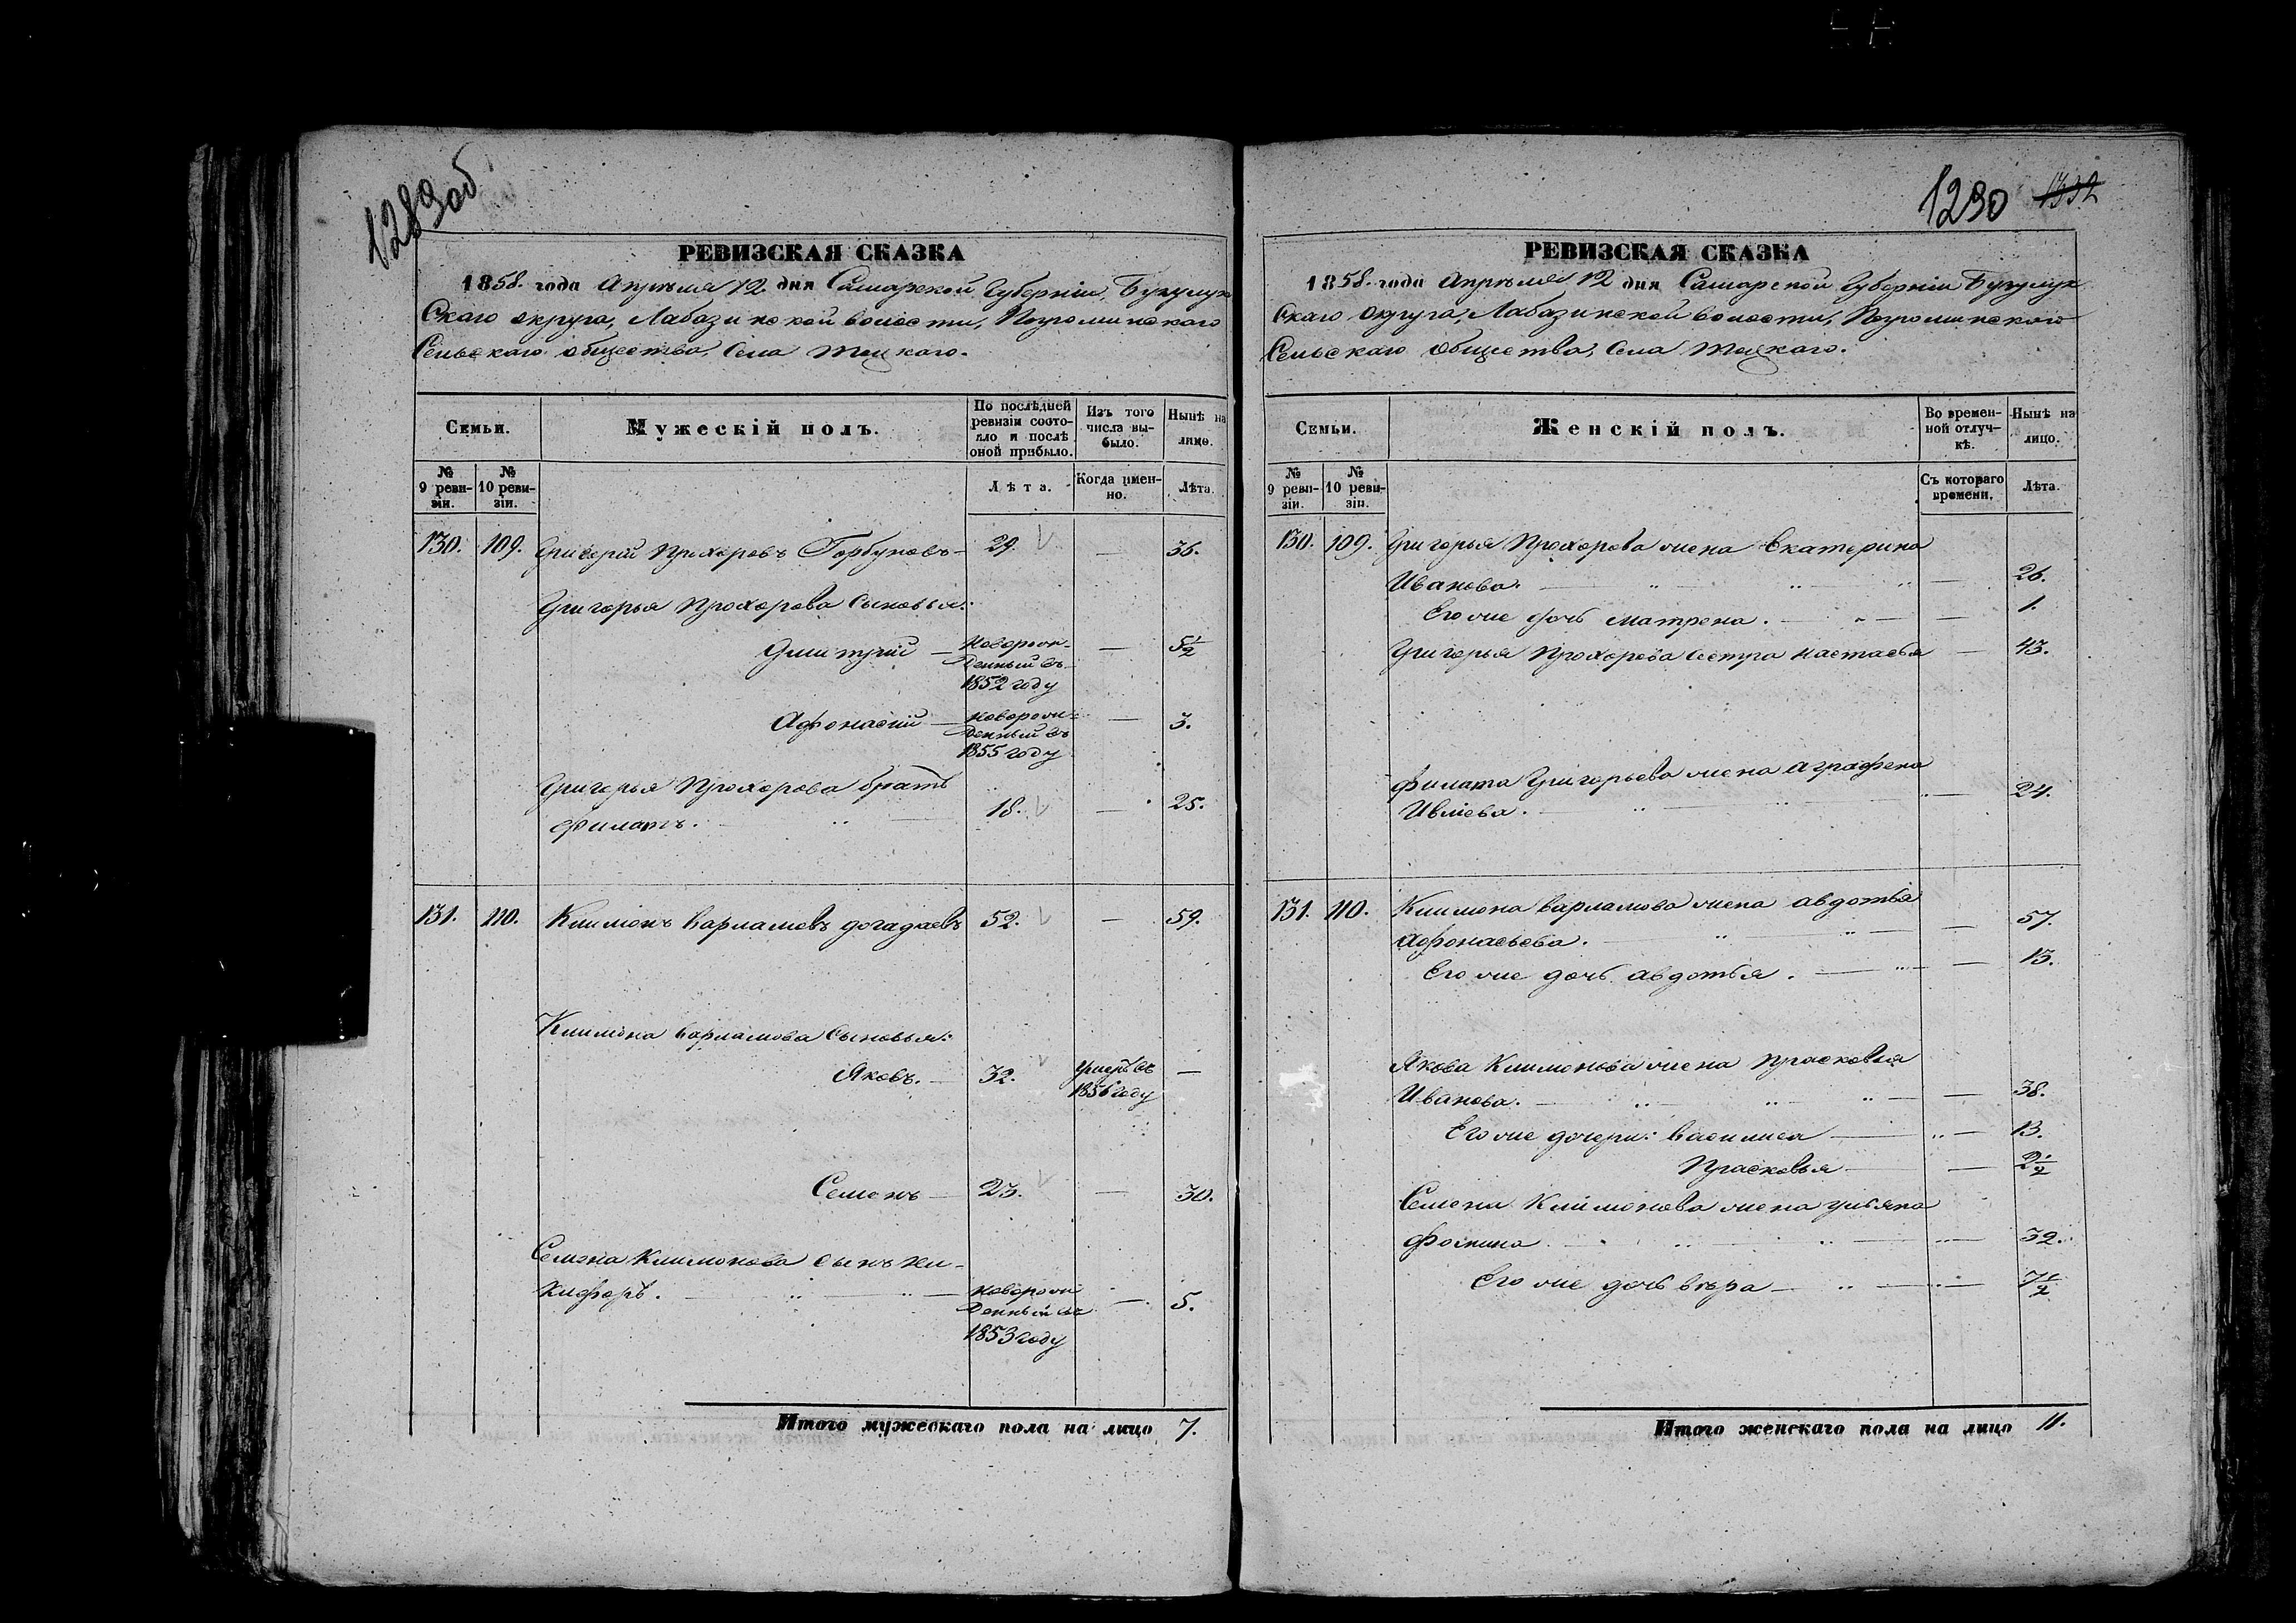 1289об
РЕВИЗСКАЯ СКАЗКА
1858. года Апрѣля 12. дня Самарской Губерніи, Бузулук
скаго округа, Лабазинской волости, Погроминскаго
Сельскаго общества, Села Тоцкаго.
Семьи.
Мужескій полъ.
По послѣдней
ревизіи состо-
яло и послѣ
оной прибыло.
Изъ того
числа вы-
было.
Нынѣ на
лицо.
№
9 реви-
зіи.
№
10 реви-
зіи.
Лѣта.
Когда имен-
но.
Лѣта.
130. 109. Григорій Прохоровъ Горбуновъ 29. — 36.
Григорья Прохорова Сыновья:
Дмитрій — новорож-
денный въ
1852 году — 5 1/2
Афонасій — новорож-
денный въ
1855 году — 3.
Григорья Прохорова братъ
Филатъ. 18. — 25.
131. 110. Климонъ Варламовъ догадаевъ 52. — 59.
Климона Варламова Сыновья:
Яковъ. — 32. умеръ въ
1856 году —
Семенъ — 23. — 30.
Семена Климонова сынъ Ни-
кифоръ. — новорож
денный въ
1853 году — 5.
Итого мужескаго пола на лицо 7.
1290 1332
РЕВИЗСКАЯ СКАЗКА
1858. года Апрѣля 12 дня Самарской Губерніи Бузулук
скаго Округа, Лабазинской волости, Погроминскаго
Сельскаго Общества, Села Тоцкаго.
Семьи.
Женскій полъ.
Во времен-
ной отлуч-
кѣ.
Нынѣ на
лицо.
№
9 реви-
зіи.
№
10 реви-
зіи.
Съ котораго
времени.
Лѣта.
130. 109. Григорья Прохорова жена Екатерина
Иванова. — 26.
Его же дочь матрена. — 1.
Григорья Прохорова Сестра настасья — 43.
Филата Григорьева жена аграфена
Ивлиева. — 24.
131. 110. Климона варламова жена авдотья
Афонасьева. — 57.
Его же дочь авдотья. — 15.
Якова Климонова жена Прасковья
Иванова. — 38.
Его же дочери: василиса — 13.
Прасковья — 2 1/2
Семена Климонова жена ульяна
Фомина. — 32.
Его же дочь вѣра — 7 1/2
Итого женскаго пола на лицо 11.